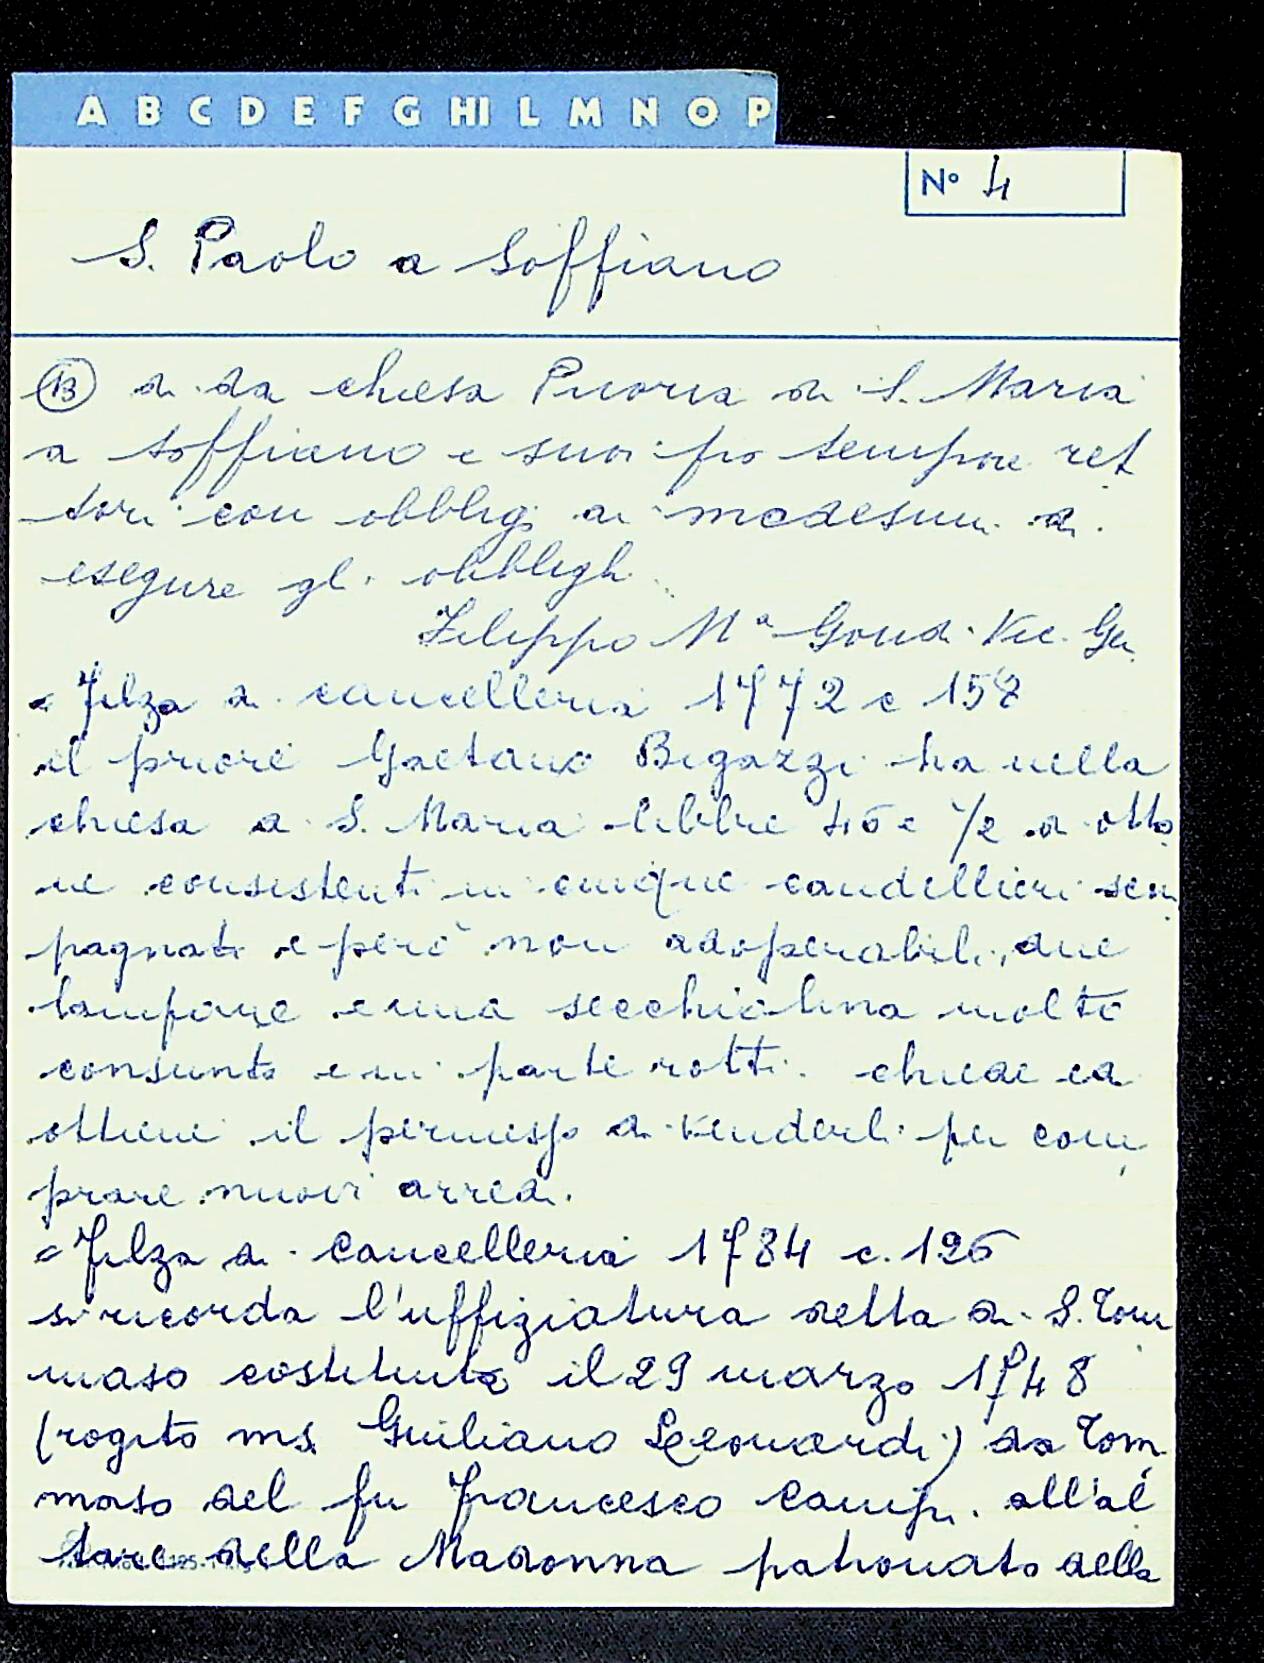 A B C D E F G HI L M N O P
N° 4
S. Paolo a Soffiano
13 di da chiesa Prioria di S. Maria
a Soffiano e suoi pro tempore ret
tori con obbligo ai medesimi di
eseguire gli obblighi
Filippo Mª Gondi Vic. Ge
= Filza di cancelleria 1772 c 157
il priore Gaetano Bigazzi ha nella
chiesa di S. Maria libbre 46 e 1/2 di otto
ne consistenti in cinque candellieri scom
pagnati e però non adoperabili, due
lampane e una secchiolina molto
consunte e in parte rotti. chiede ed
ottiene il permesso di venderli per com
prare nuovi arredi.
= Filza di Cancelleria 1784 c. 126
si ricorda l'uffiziatura detta di S. Tom
maso costituita il 29 marzo 1748
(rogito ms. Giuliano Leonardi) da Tom
maso del fu Francesco Campi all'al
tare della Madonna patronato della